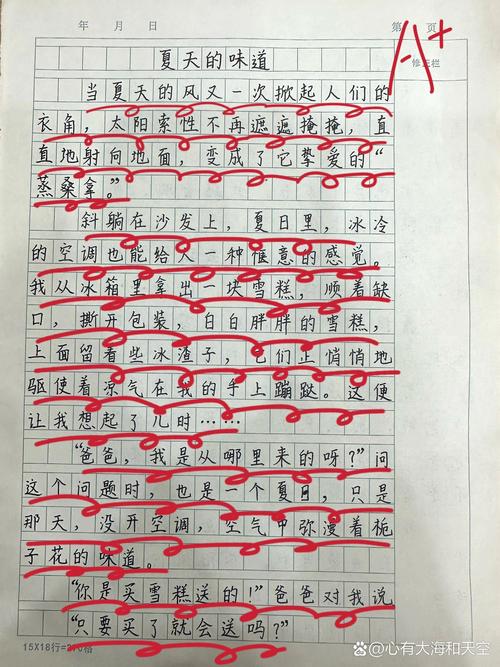 年 月 日 第 页
A+
修正栏
夏天的味道
当夏天的风又一次掀起人们的
衣角，太阳索性不再遮遮掩掩，直
直地射向地面，变成了它挚爱的“
蒸桑拿。”
斜躺在沙发上，夏日里，冰冷
的空调也能给人一种惬意的感觉。
我从冰箱里拿出一块雪糕，顺着缺
口，撕开包装，白白胖胖的雪糕，
上面留着些冰渣子，它们正悄悄地
驱使着凉气在我的手上蹦跶。这便
让我想起了儿时……
“爸爸，我是从哪里来的呀？”问
这个问题时，也是一个夏日，只是
那天，没开空调，空气中弥漫着栀
子花的味道。
“你是买雪糕送的！”爸爸对我说
“只要买了就会送吗？”
15X18行=270格
@心有大海和天空